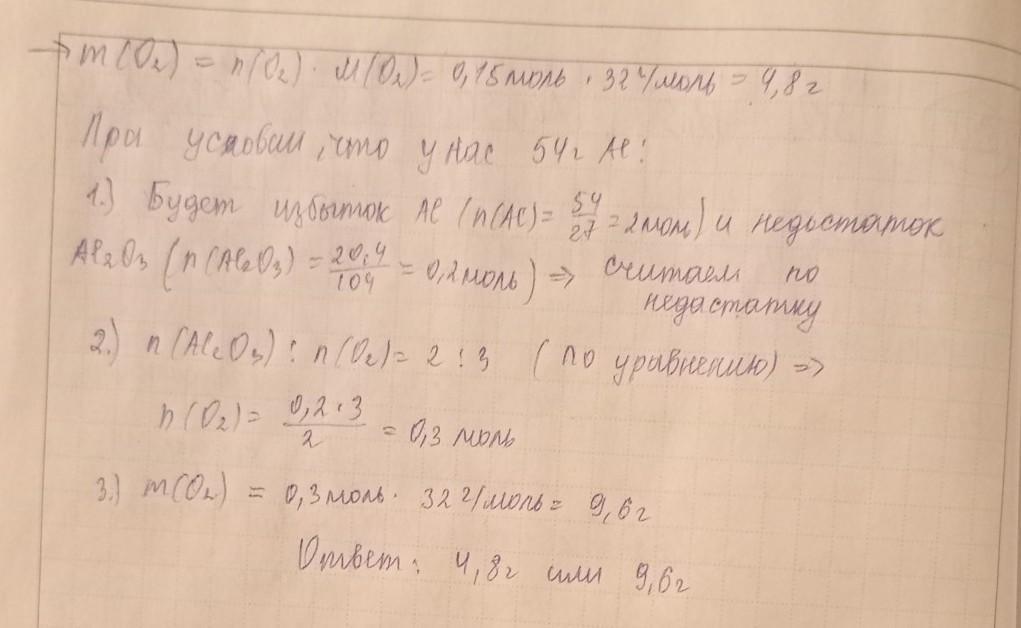 → m(O₂) = n(O₂) · M(O₂) = 0,15 моль · 32 г/моль = 4,8 г
При условии, что у нас 54 г Al:
1.) Будет избыток Al (n(Al) = 54/27 = 2 моль) и недостаток
Al₂O₃ (n(Al₂O₃) = 20,4/104 = 0,2 моль) ⇒ считаем по
недастатку
2.) n(Al₂O₃) : n(O₂) = 2 : 3 (по уравнению) ⇒
n(O₂) = 0,2·3/2 = 0,3 моль
3.) m(O₂) = 0,3 моль · 32 г/моль = 9,6 г
Ответ: 4,8 г или 9,6 г